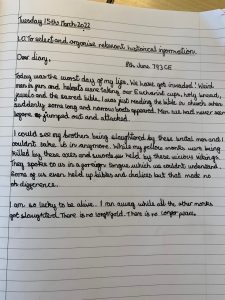 Tuesday 15th March 2022
LO: To select and organise relevant historical information.
Dear diary,
8th June 793CE
Today was the worst day of my life. We have got invaded! Weird
men in fur and helmets were taking our Eucharist cups, holy bread,
jewels and the sacred bible. I was just reading the bible in church when
suddenly some long and narrow boats appeared. Men we had never seen
before jumped out and attacked.
I could see my brothers being slaughtered by these brutal men and I
couldn't take it in anymore. While my fellow monks were being
killed by these axes and swords held by these vicious vikings.
They spoke to us in a foreign tongue which we couldn't understand.
Some of us even held up bibles and chalices but that made no
difference.
I am so lucky to be alive. I ran away while all the other monks
got slaughtered. There is no longer gold. There is no longer peace.